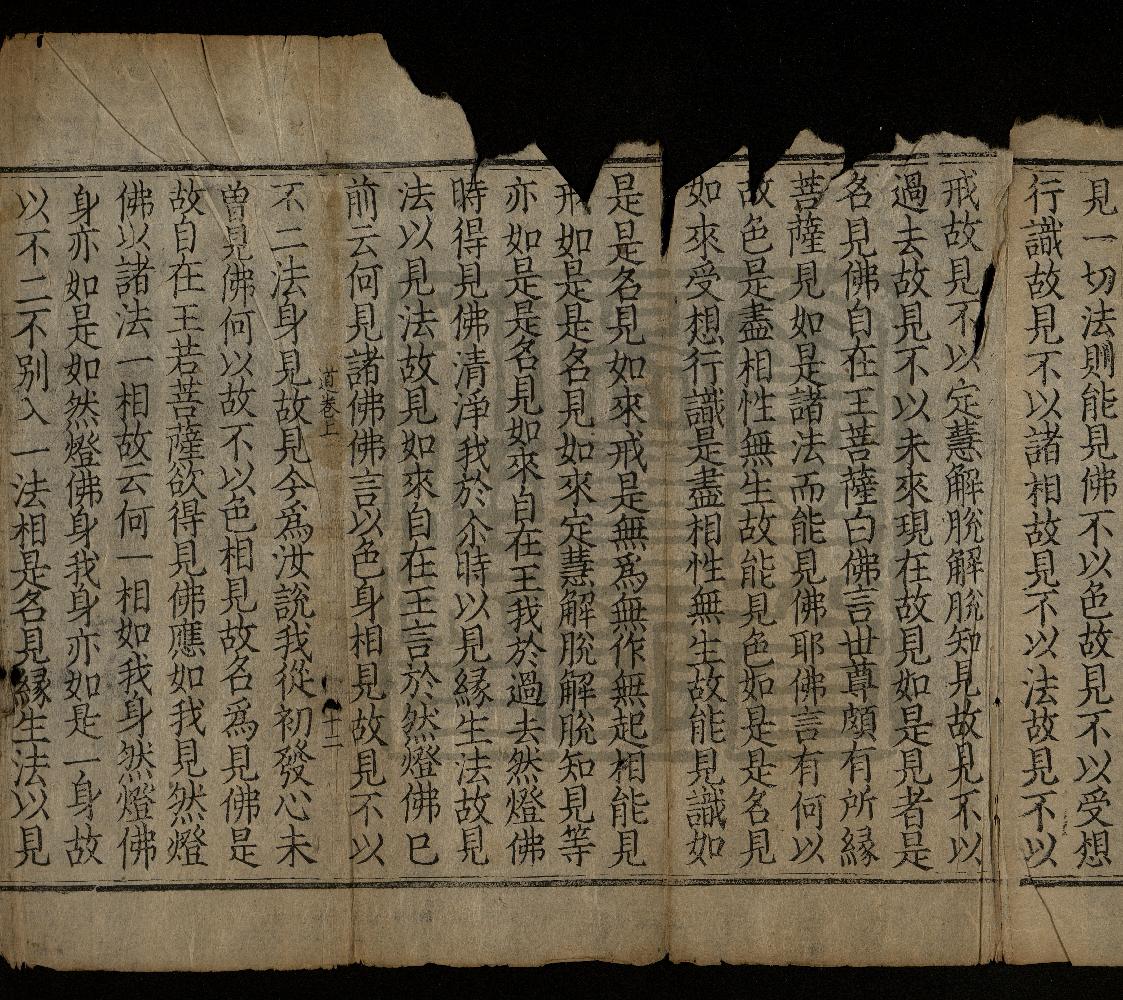 見一切法則能見佛不以色故見不以受想
行識故見不以諸相故見不以法故見不以
戒故見不以定慧解脫解脫知見故見不以
過去故見不以未來現在故見如是見者是
名見佛自在王菩薩白佛言世尊頗有所緣
菩薩見如是諸法而能見佛耶佛言有何以
故色是盡相性無生故能見色如是是名見
如來受想行識是盡相性無生故能見識如
是是名見如來戒是無為無作無起相能見
戒如是是名見如來定慧解脫解脫知見等
亦如是是名見如來自在王我於過去然燈佛
時得見佛清淨我於尒時以見緣生法故見
法以見法故見如來自在王言於然燈佛已
前云何見諸佛佛言以色身相見故見不以
道卷上 十二
不二法身見故見今為汝說我從初發心未
曾見佛何以故不以色相見故名為見佛是
故自在王若菩薩欲得見佛應如我見然燈
佛以諸法一相故云何一相如我身然燈佛
身亦如是如然燈佛身我身亦如是一身故
以不二不別入一法相是名見緣生法以見